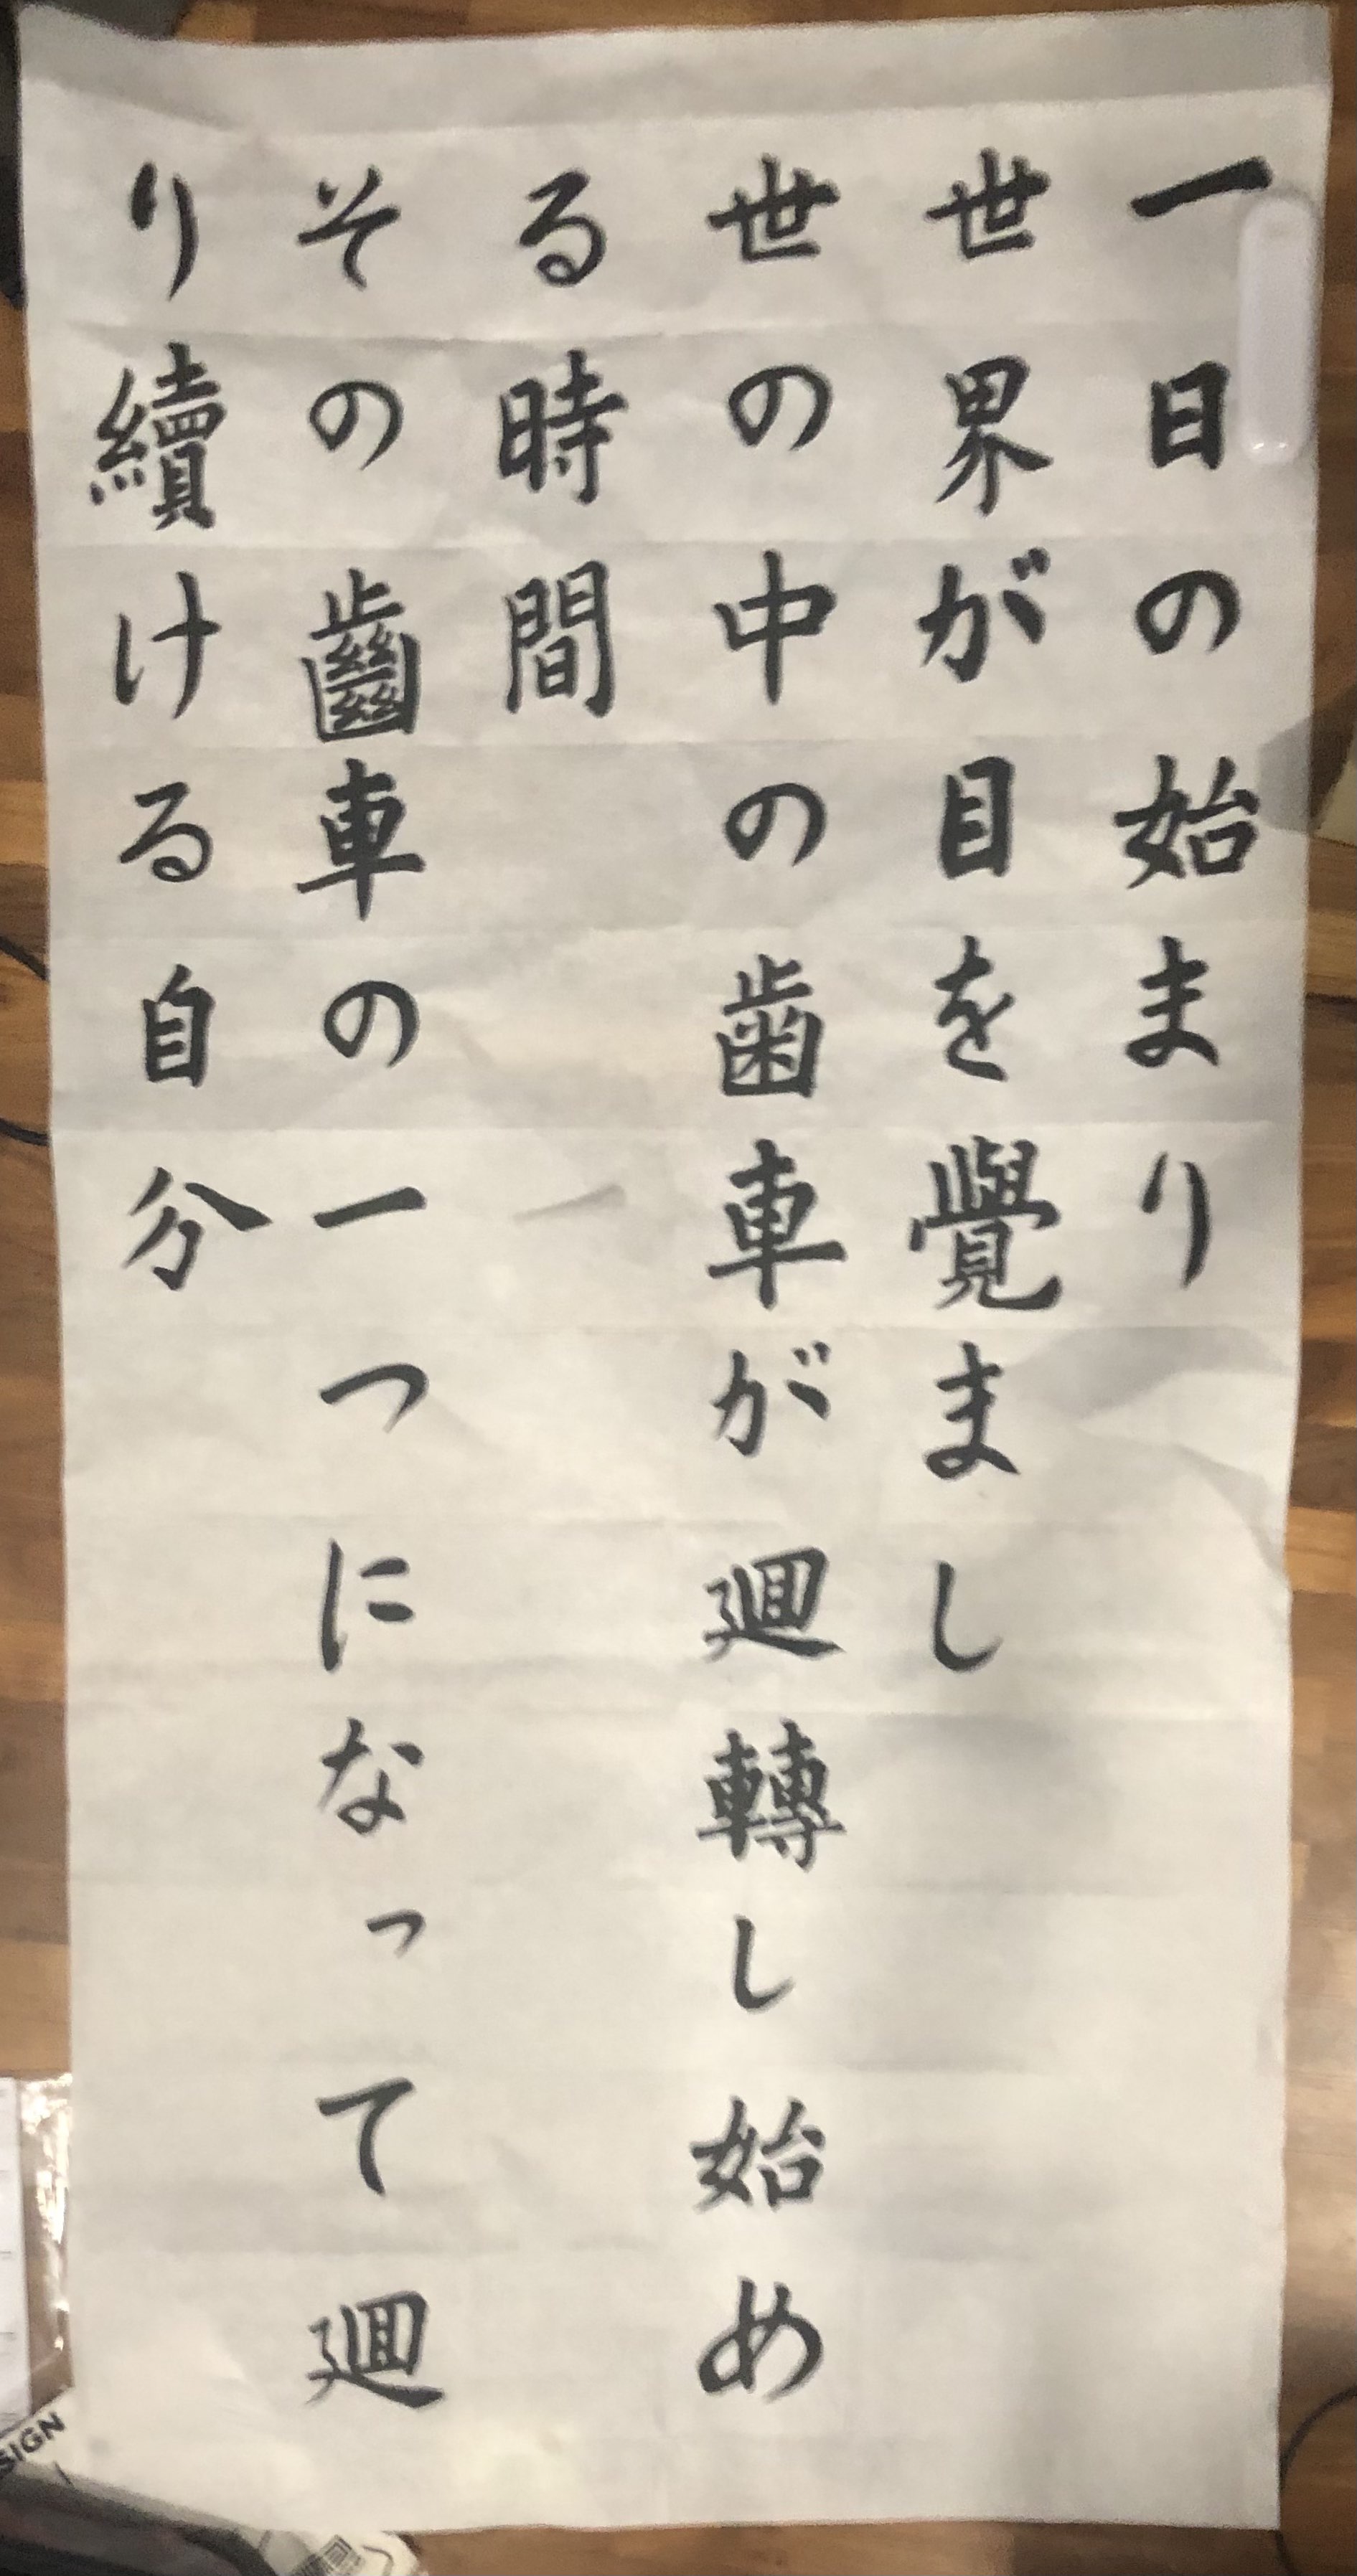 一日の始まり
世界が目を覺まし
世の中の歯車が廻轉し始め
る時間
その齒車の一つになって廻
り續ける自分
SIGN